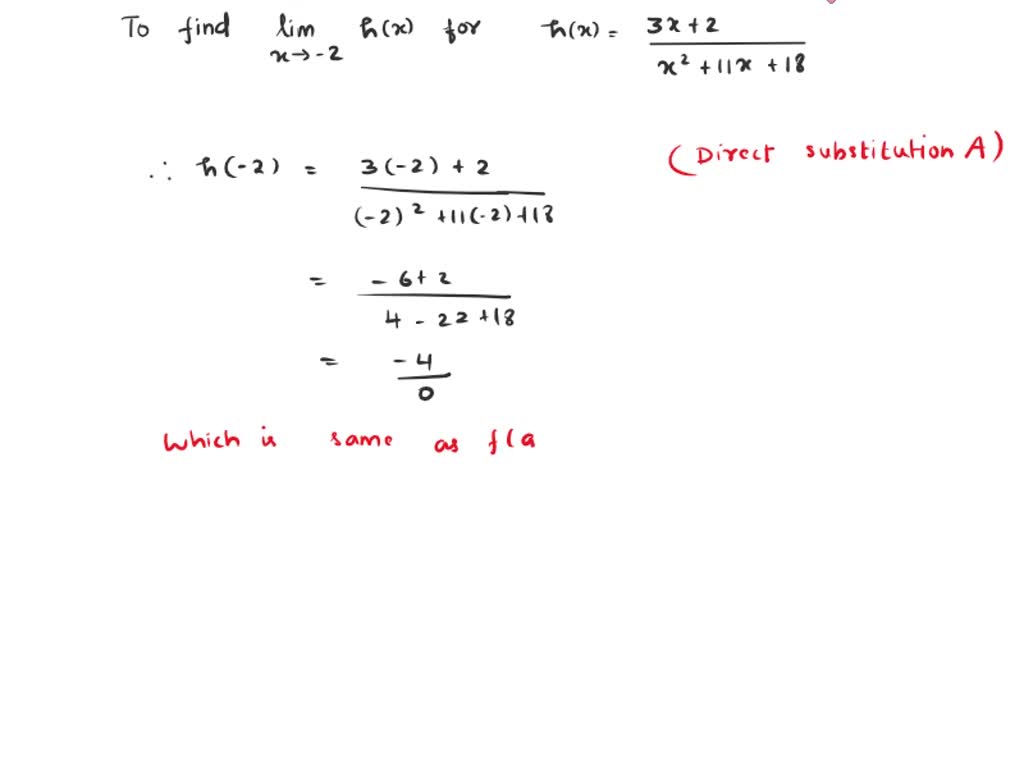 To find lim x→-2 h(x) for h(x) = 3x+2 / x² + 11x + 18
∴ h(-2) = 3(-2) + 2 / (-2)² + 11(-2) + 18 (Direct substitution A)
= -6 + 2 / 4 - 22 + 18
= -4 / 0
Which is same as f(a